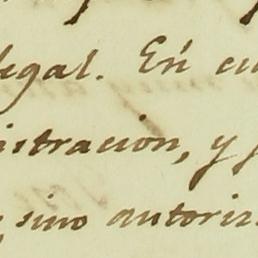 legal. En cu
istracion, y
sino autoriz